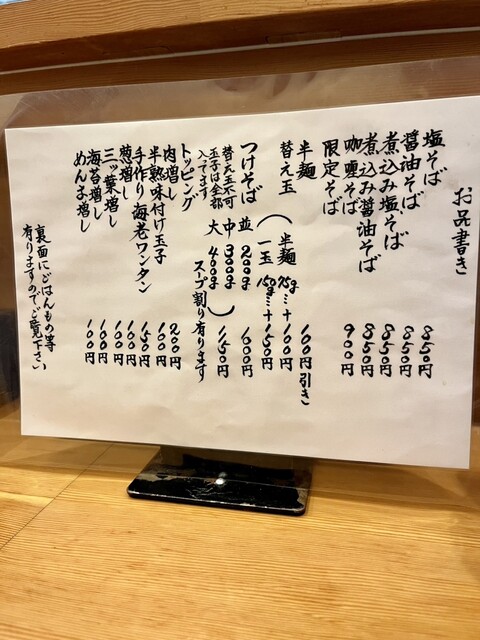 お品書き
塩そば 850円
醤油そば 850円
煮込み塩そば 850円
煮込み醤油そば 850円
咖喱そば 900円
限定そば
半麺 100円引き
替え玉(半麺 75g…+100円
一玉 150g…+150円)
つけそば 並 200g
替え玉不可 中 300g
玉子は全部 大 400g 1150円
入ってます スープ割り有ります
トッピング
肉増し 200円
半熟味付け玉子 100円
手作り海老ワンタン 150円
葱増し 100円
三ッ葉増し 100円
海苔増し 100円
めんま増し 100円
裏面にごはんもの等
有りますのでご覧下さい